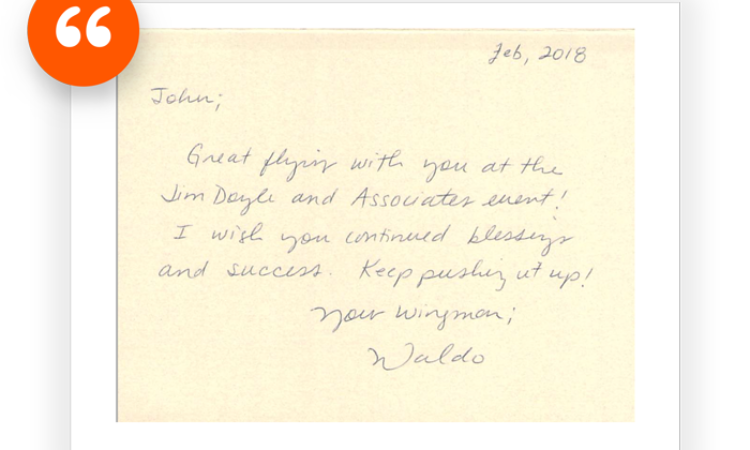 Feb, 2018
John;
Great flying with you at the
Jim Doyle and Associates event!
I wish you continued blessings
and success. Keep pushing it up!
Your Wingman;
Waldo